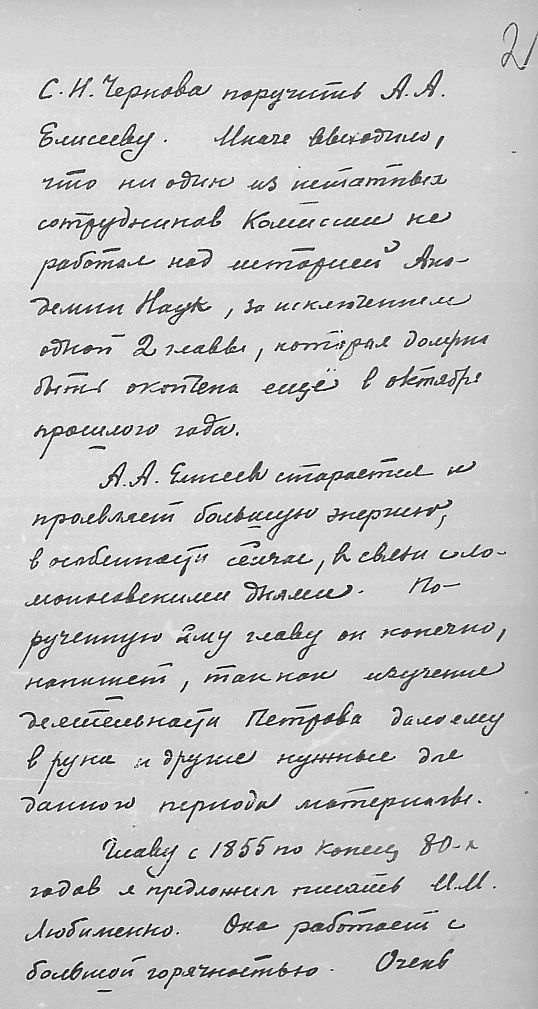 21
С. Н. Чернова поручить А. А.
Елисееву. Иначе выходило,
что ни один из нештатных
сотрудников Комиссии не
работал над историей Ака-
демии Наук, за исключением
одной 2 главы, которая должна
быть окончена ещё в октябре
прошлого года.
А. А. Елисеев старается и
проявляет большую энергию,
в особенности сейчас, в связи с ло-
моносовскими днями. По-
рученную ему главу он конечно,
напишет, так как изучение
деятельности Петрова дало ему
в руки и другие нужные для
данного периода материалы.
Главу с 1855 по конец 80-х
годов я предложил писать И. И.
Любименко. Она работает с
большой горячностью. Очень